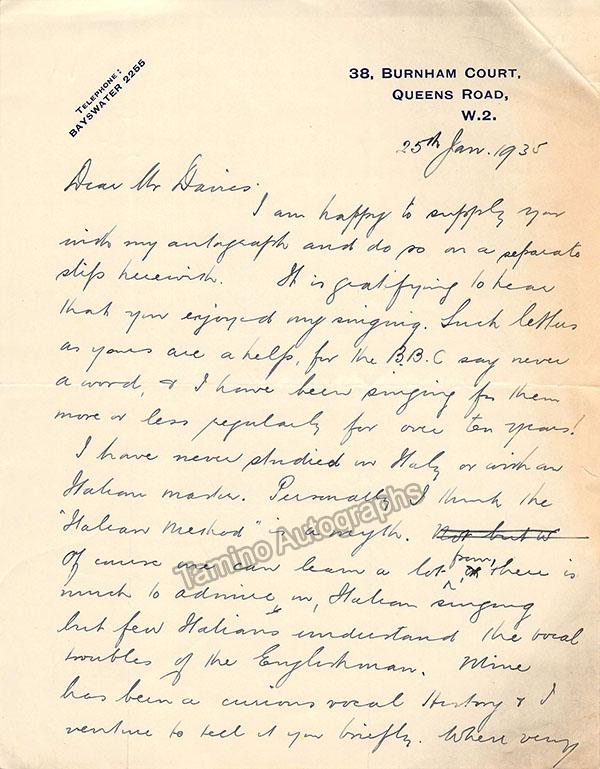 TELEPHONE:
BAYSWATER 2255
38, BURNHAM COURT,
QUEENS ROAD,
W.2.
25th Jan. 1935
Dear Mr Davies.
I am happy to supply you
with my autograph and do so on a separate
slip herewith. It is gratifying to hear
that you enjoyed my singing. Such letters
as yours are a help, for the B.B.C say never
a word, & I have been singing for them
more or less regularly for over ten years!
I have never studied in Italy or with an
Italian master. Personally I think the
"Italian Method" is a myth. Not but w
Of course one can learn a lot from, or there is
much to admire in, Italian singing
but few Italians understand the vocal
troubles of the Englishman. Mine
has been a curious vocal history & I
venture to tell it you briefly. When very
Tamino Autographs